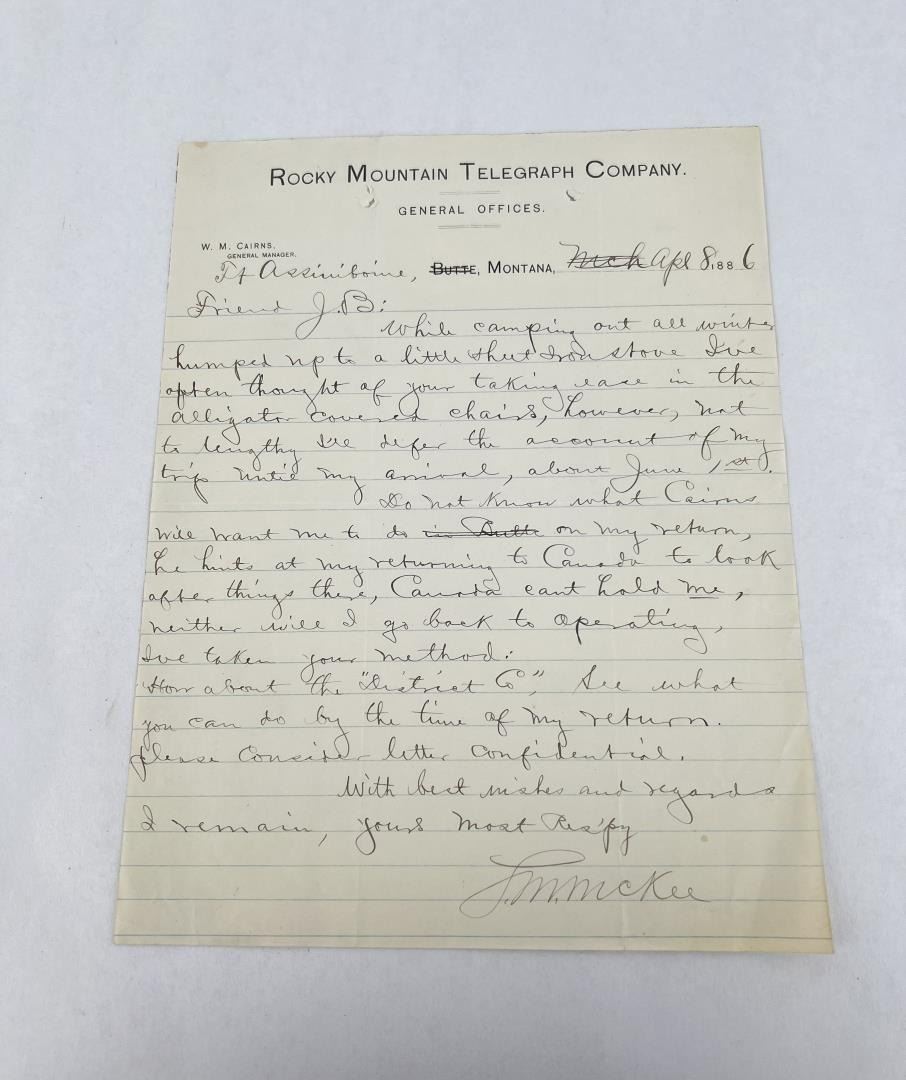 ROCKY MOUNTAIN TELEGRAPH COMPANY.
GENERAL OFFICES.
W. M. CAIRNS,
GENERAL MANAGER.
Ft Assiniboine, BUTTE, MONTANA, Mch Apl 8, 1886
Friend J.B:
While camping out all winter
humped up to a little sheet Iron stove I've
often thought of your taking ease in the
alligator covered chairs, however, not
to lengthy I'll defer the account of my
trip until my arrival, about June 1st.
Do not know what Cairns
will want me to do in Butte on my return,
he hints at my returning to Canada to look
after things there, Canada cant hold me,
neither will I go back to operating,
I've taken your method:
How about the "District Co", See what
you can do by the time of my return.
please consider letter confidential.
With best wishes and regards
I remain, yours most Res'py
McKee